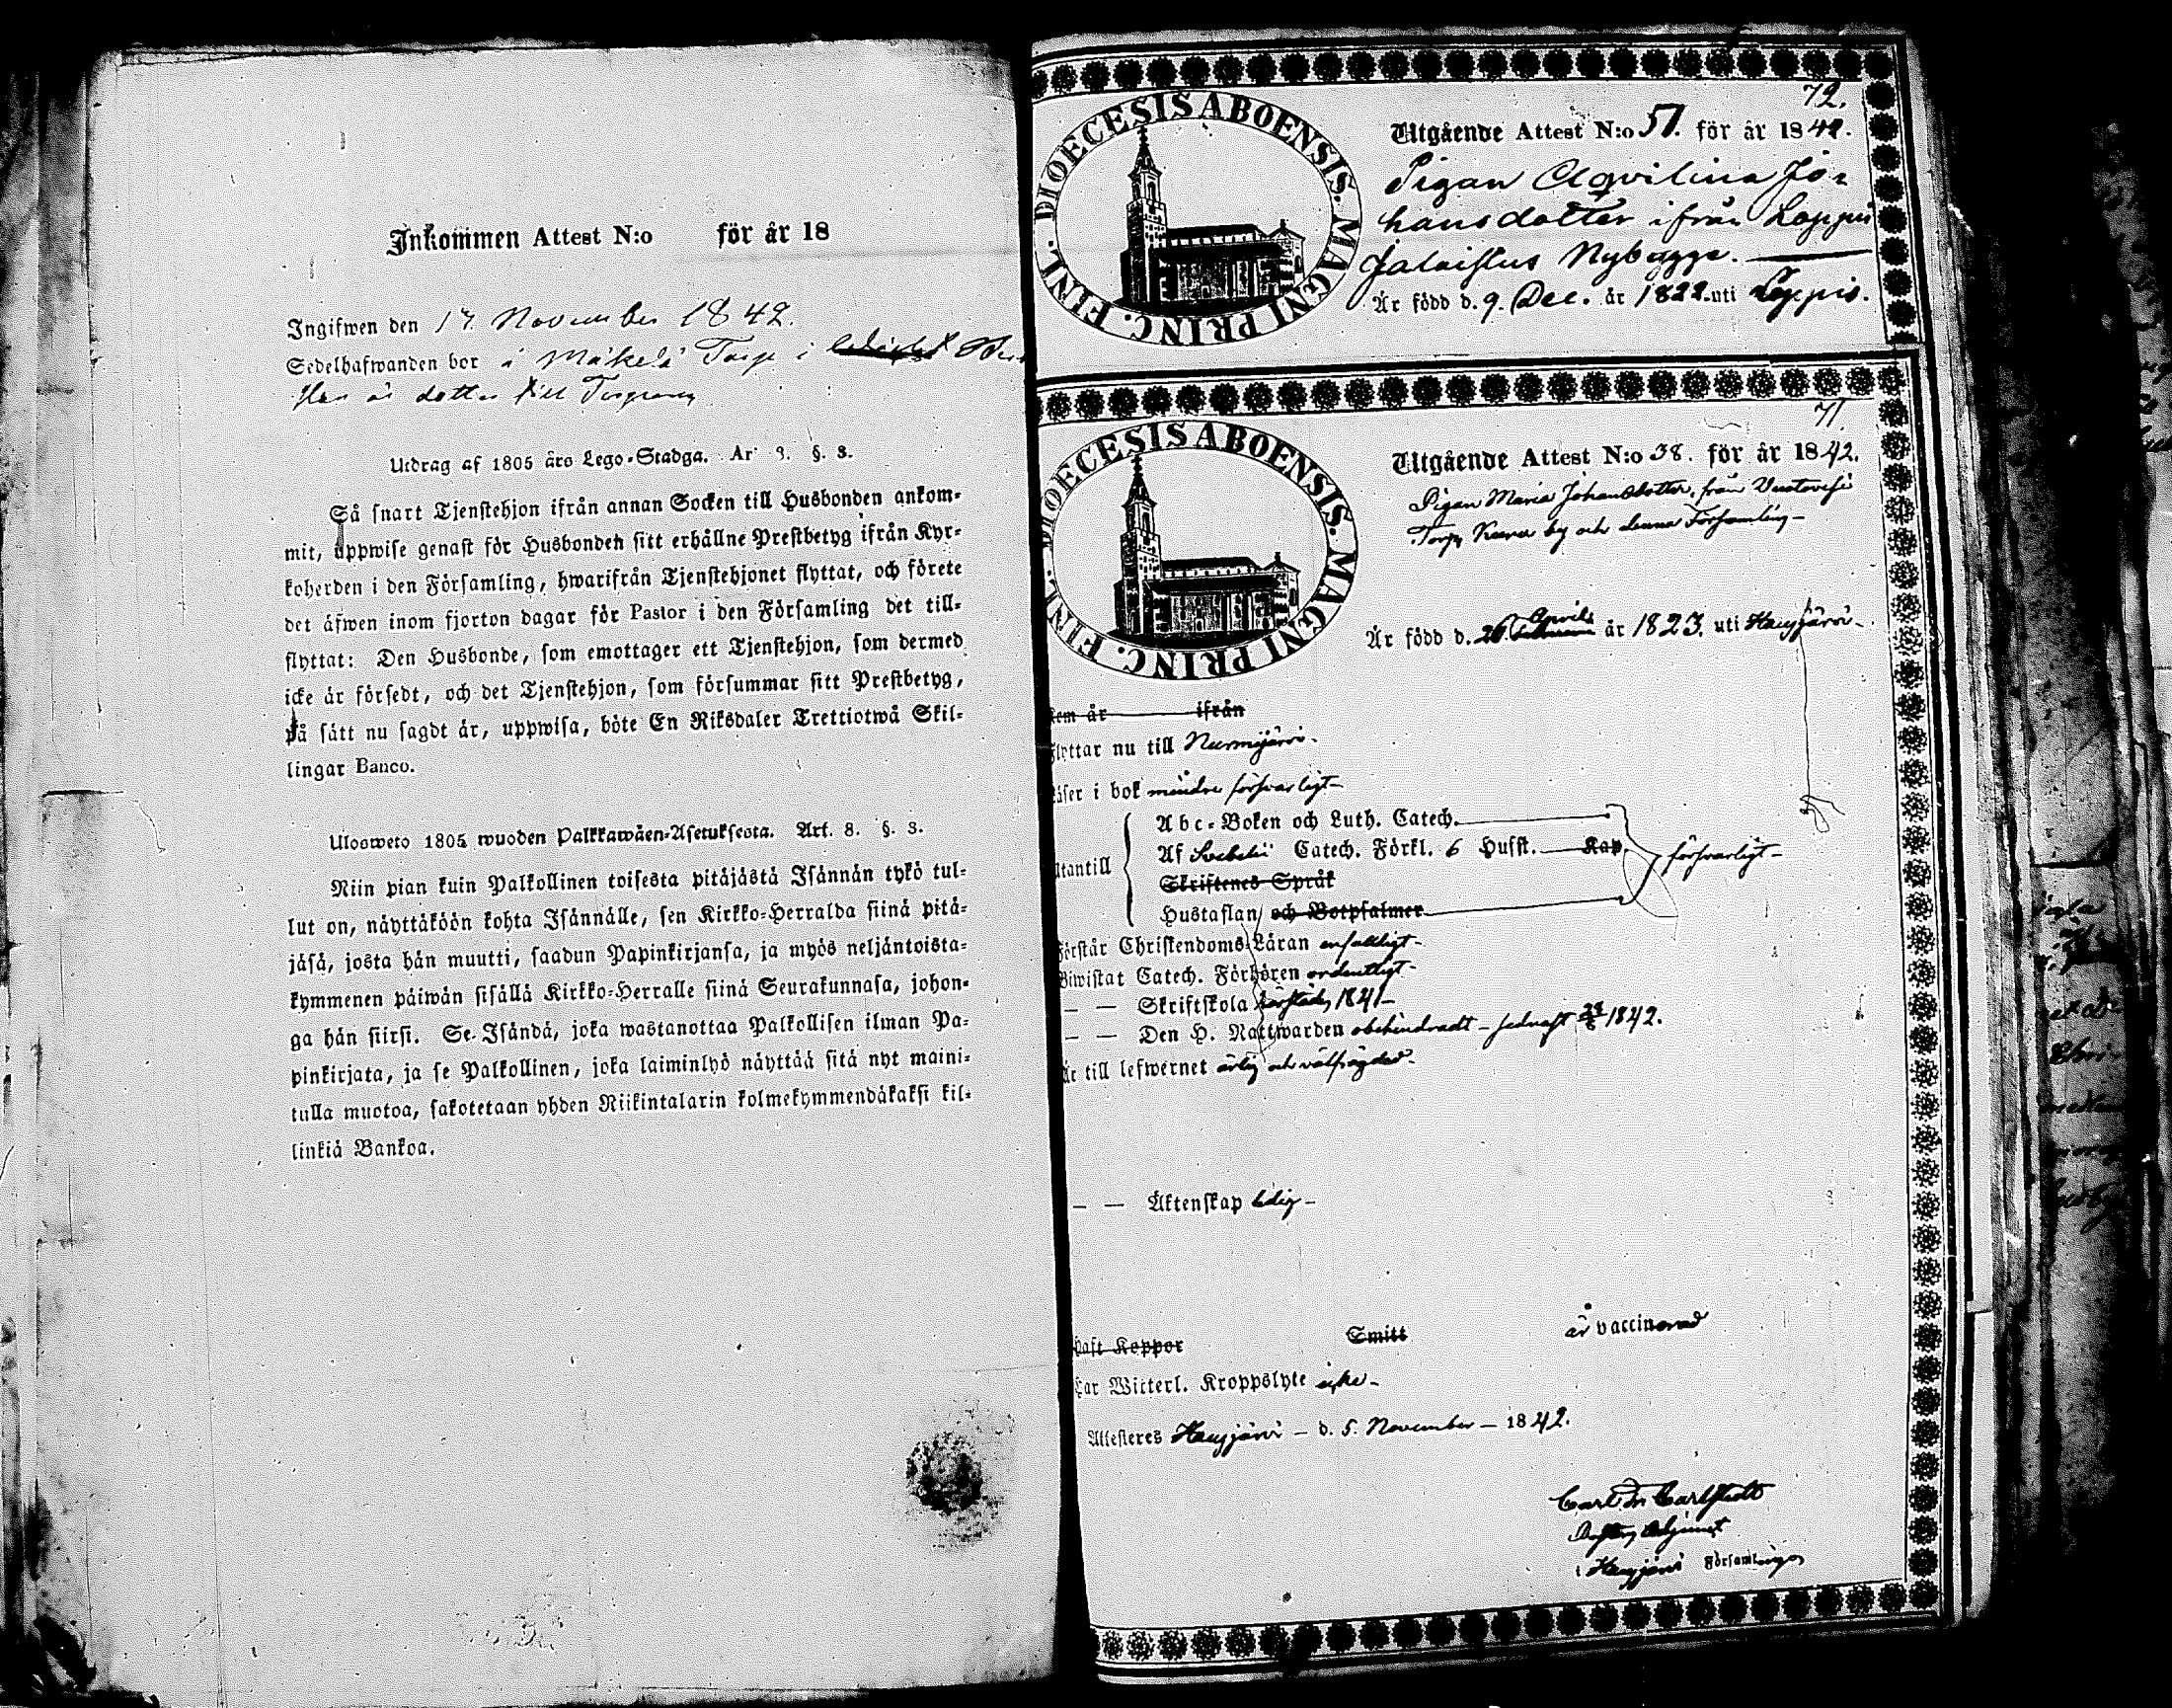 Inkommen Attest N:o för år 18
Ingifwen den 17 November 1842.
Sedelhafwanden bor å Mäkelä Torp i
Hon är dotter till Torparen
Utdrag af 1805 års Lego-Stadga. Ar 3. §. 3.
Så snart Tjenstehjon ifrån annan Socken till Husbonden ankom-
mit, uppwise genast för Husbonden sitt erhållne Prestbetyg ifrån Kyr-
koherden i den Församling, hwarifrån Tjenstehjonet flyttat, och förete
det äfwen inom fjorton dagar för Pastor i den Församling det till-
flyttat: Den Husbonde, som emottager ett Tjenstehjon, som dermed
icke är försedt, och det Tjenstehjon, som försummar sitt Prestbetyg,
på sätt nu sagdt är, uppwisa, böte En Riksdaler Trettiotwå Skil-
lingar Banco.
Uloswetö 1805 wuoden Palkkawäen-Asetuksesta. Art. 8. §. 3.
Niin pian kuin Palkollinen toisesta pitäjästä Isännän tykö tul-
lut on, näyttäköön kohta Isännälle, sen Kirkko-Herralda siinä pitä-
jäsä, josta hän muutti, saadun Papinkirjansa, ja myös neljäntoista-
kymmenen päiwän sisällä Kirkko-Herralle siinä Seurakunnasa, johon-
ga hän siirsi. Se Isändä, joka wastanottaa Palkollisen ilman Pa-
pinkirjata, ja se Palkollinen, joka laiminlyö näyttää sitä nyt maini-
tulla muotoa, sakotetaan yhden Riikintalarin kolmekymmendäkaksi kil-
linkiä Bankoa.
72.
DIOECESIS ABOENSIS. MAGNI PRINC. FINL.
Utgående Attest N:o 51. för år 1842.
Pigan Aqvilina Jo-
hansdotter ifrån Loppis
Jalaistus Nybygge.
Är född d. 9. Dec. år 1822. uti Loppis.
71.
DIOECESIS ABOENSIS. MAGNI PRINC. FINL.
Utgående Attest N:o 38. för år 1842.
Pigan Maria Johansdotter, från
Torp by och denna Församling
Är född d. 26 April år 1823. uti Hausjärvi
kem år ifrån
flyttar nu till Nurmijärvi
läser i bok mindre försvarligt
Abc-Boken och Luth. Catech.
Af Svebelii Catech. Förkl. 6 Hufst. Kap. försvarligt
utantill
Skriftenes Språk
Hustaflan och Botpsalmer
Förstår Christendoms-Läran enfaldigt
Biwistat Catech. Förhören ordentligt
— — Skriftskola 1841
— — Den H. Nattwarden obehindradt sednast 1842.
Är till lefwernet ärlig och välfrägdad
— — Äktenskap ledig
haft Koppor Smitt är vaccinerad
har Witterl. Kroppslyte icke
Attesteres Hausjärvi d. 5. November 1842.
Carl Fr Carlstedt
Adjunct
i Hausjärvi Församlingen